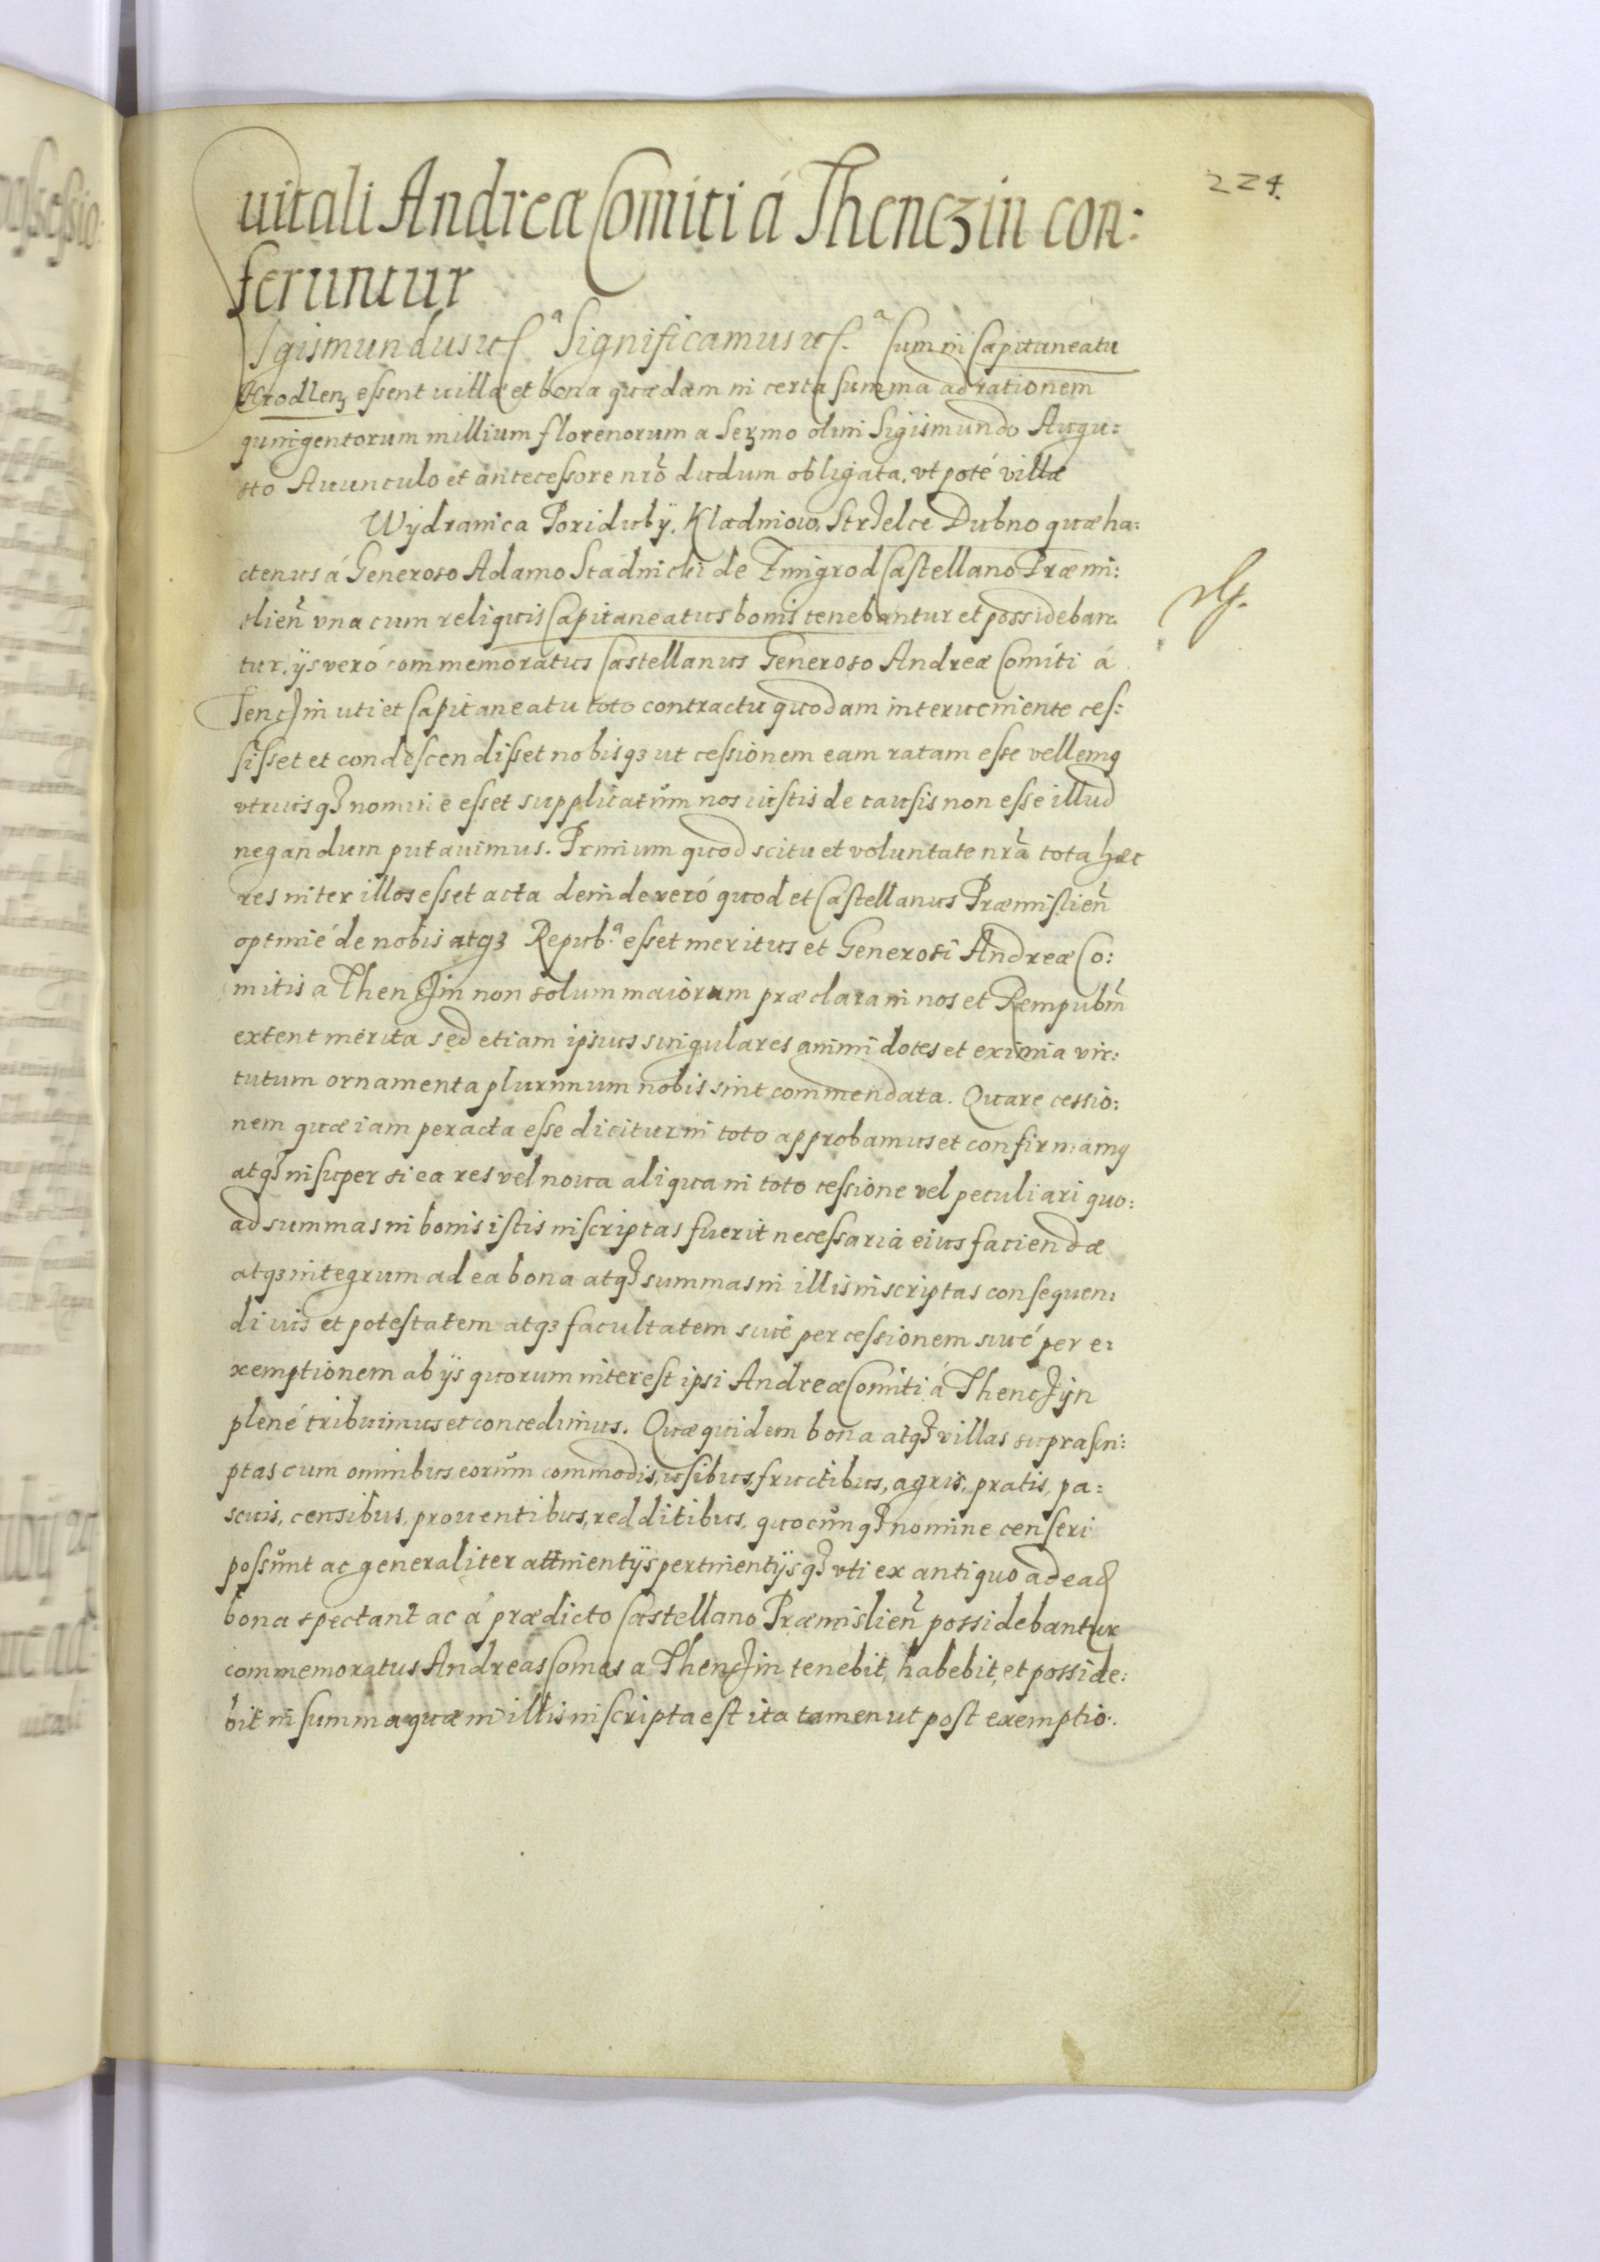 224.
uitali Andreæ Comiti á Thenczin con:
feruntur
Sigismundus uc̃ᵃ Significamus uc̃.ᵃ Cum in Capitaneatu
Hrodlenȝ essent uillæ et bona quædam in certa summa ad rationem
quingentorum millium florenorum a Serᵐᵒ olim Sigismundo Augu:
sto Auunculo et antecessore nrõ dudum obligata, vt poté villæ
Wydranica Poriduby, Kladniow, Strzelce Dubno quæ ha:
ctenus á Generoso Adamo Stadnicki de Zmigrod Castellano Præmi:
slień vna cum reliquis Capitaneatus bonis tenebantur et possideban:
tur, ijs veró commemoratus Castellanus Generoso Andreæ Comiti á
Tenczin uti et Capitaneatu toto contractu quodam interueniente ces:
sisset et condescendisset nobisqȝ ut cessionem eam ratam esse vellemꝰ
vtriusqȝ nomine esset supplicatům nos iustis de causis non esse illud
negandum putauimus. Primum quod scitu et voluntate nrã tota hæc
res inter illos esset acta deinde veró quod et Castellanus Præmislień
optimé de nobis atqȝ Repub.ᵃ esset meritus et Generosi Andreæ Co:
mitis a Thenczin non solum maiorum præclara in nos et Rempubm̃
extent merita sed etiam ipsius singulares animi dotes et eximia vir:
tutum ornamenta plurimum nobis sint commendata. Quare cessio:
nem quæ iam peracta esse dicitur in toto approbamus et confirmamꝰ
atqȝ insuper si ea res vel noua aliqua in toto cessione vel peculiari quo:
ad summas in bonis istis inscriptas fuerit necessaria eius faciendæ
atqȝ integrum ad ea bona atqȝ summas in illis inscriptas consequen:
di ius et potestatem atqȝ facultatem siué per cessionem siué per e:
xemptionem ab ijs quorum interest ipsi Andreæ Comiti á Thenczyn
plené tribuimus et concedimus. Quæ quidem bona atqȝ villas suprascri:
ptas cum omnibus eorům commodis, usibus, fructibus, agris, pratis, pa:
scuis, censibus, prouentibus, redditibus, quocůnqȝ nomine censeri
possůnt ac generaliter attinentijs pertinentijsqȝ vti ex antiquo ad ead
bona spectant ac á prædicto Castellano Præmislień possidebantur
commemoratus Andreas Comes a Thenczin tenebit, habebit, et posside:
bit in summa quæ in illis inscripta est ita tamen ut post exemptio: